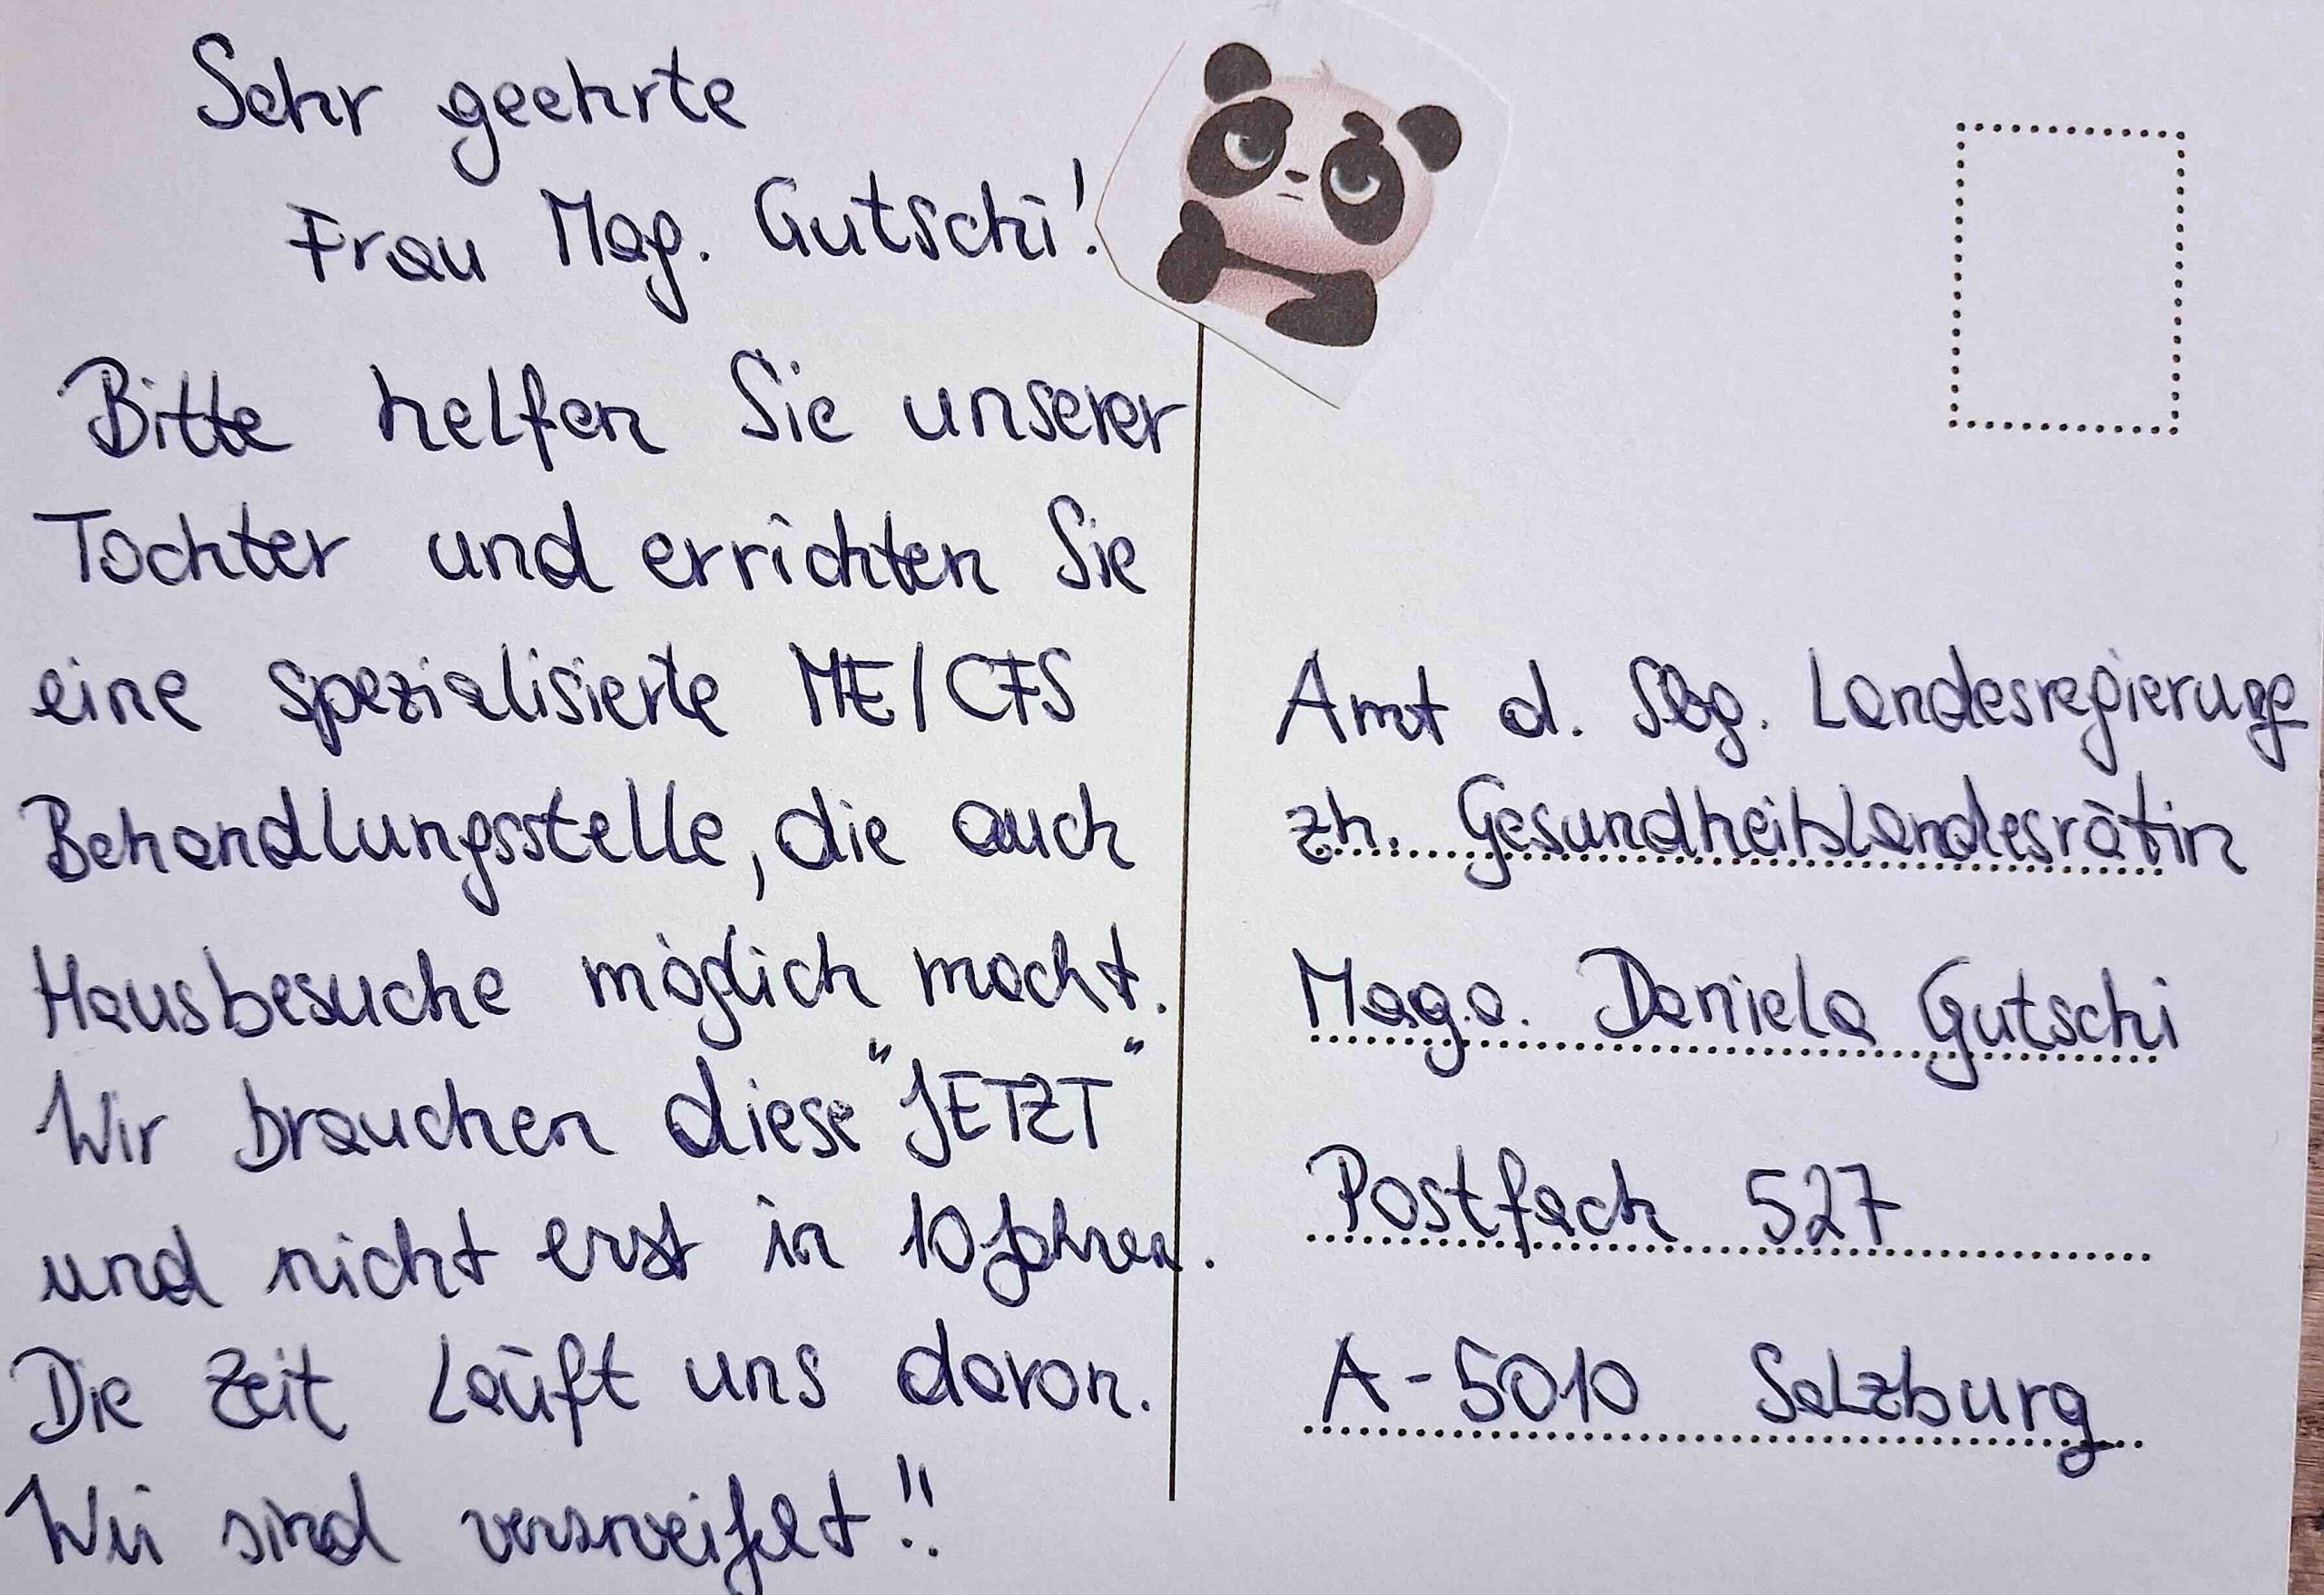 Sehr geehrte
Frau Mag. Gutschi!
Bitte helfen Sie unserer
Tochter und errichten Sie
eine spezialisierte ME/CFS
Behandlungsstelle, die auch
Hausbesuche möglich macht.
Wir brauchen diese "JETZT"
und nicht erst in 10 Jahren.
Die Zeit läuft uns davon.
Wir sind verzweifelt!!
Amt d. Sbg. Landesregierung
zh. Gesundheitslandesrätin
Mag.a. Daniela Gutschi
Postfach 527
A-5010 Salzburg